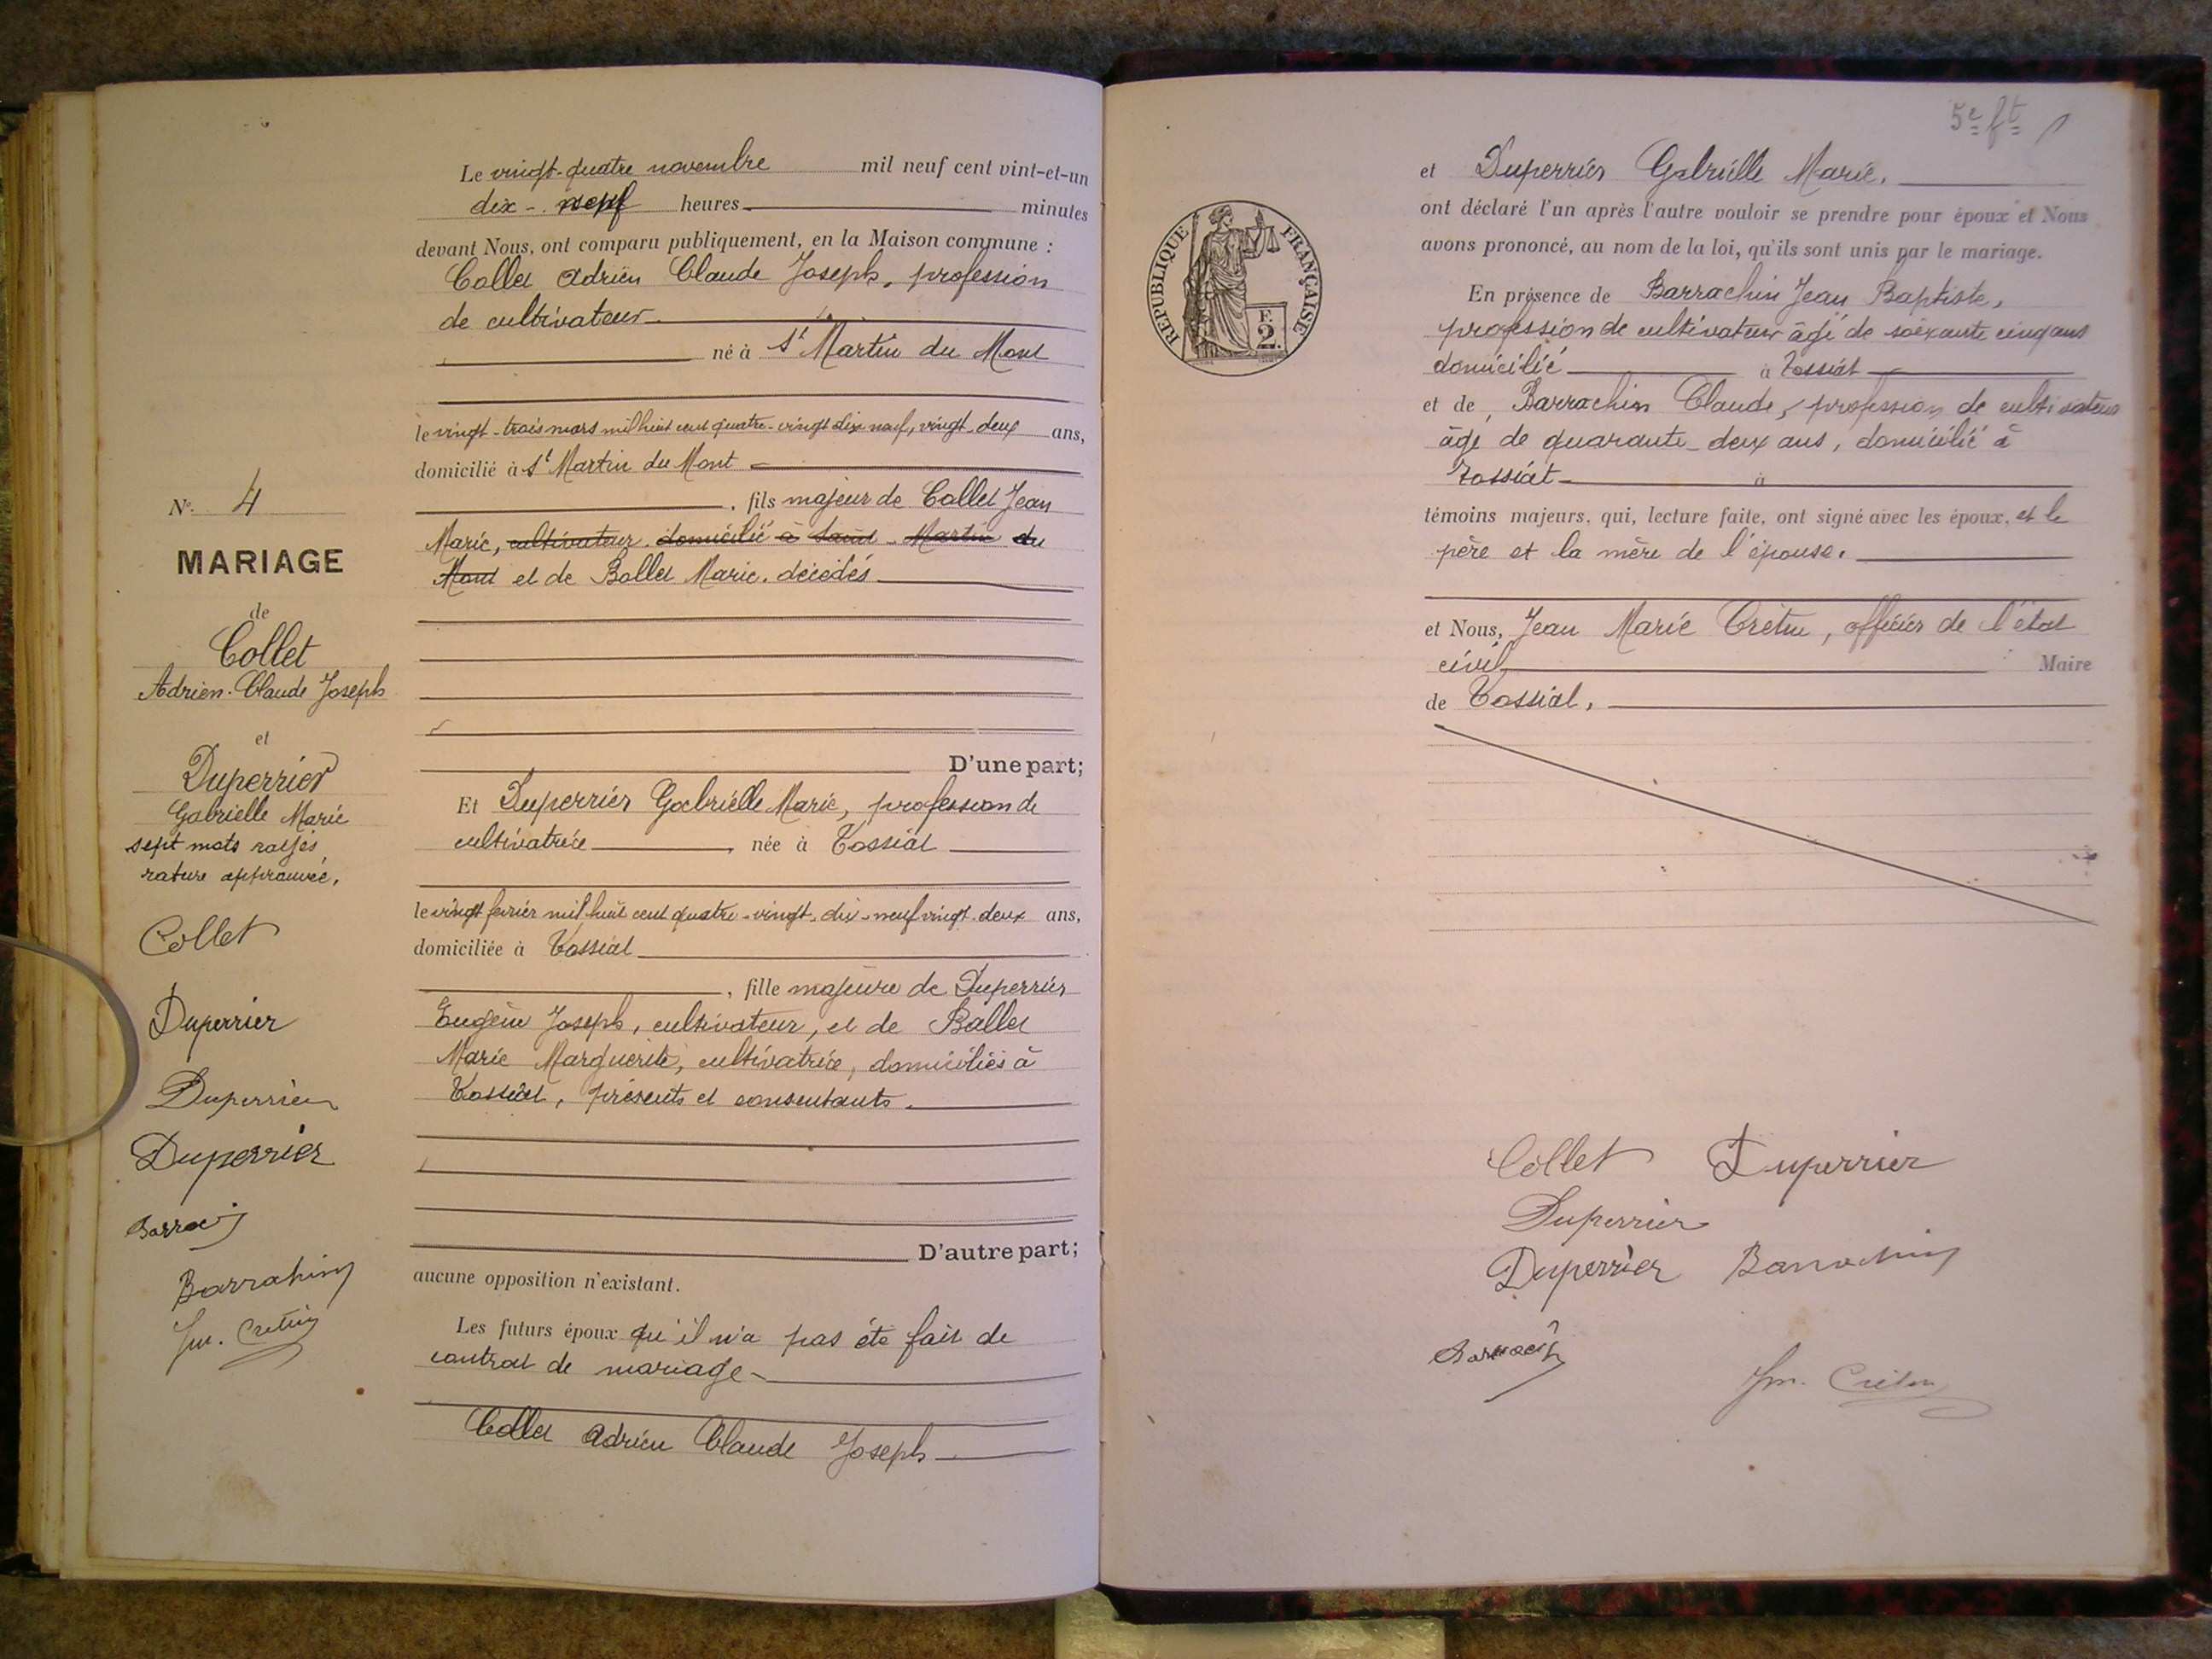 N° 4
MARIAGE
de
Collet
Adrien Claude Joseph
et
Duperrier
Gabrielle Marie
sept mots rayés
rature approuvée,
Collet
Duperrier
Duperrier
Duperrier
Barrachin
Jm. Cretin
Le vingt-quatre novembre mil neuf cent vint-et-un
dix - heures minutes
devant Nous, ont comparu publiquement, en la Maison commune :
Collet Adrien Claude Joseph, profession
de cultivateur
né à St Martin du Mont
le vingt-trois mars mil huit cent quatre-vingt dix neuf, vingt-deux ans,
domicilié à St Martin du Mont
, fils majeur de Collet Jean
Marie, cultivateur domicilié à Saint-Martin du
Mont et de Ballet Marie. décédés
D'une part;
Et Duperrier Gabrielle Marie, profession de
cultivatrice, née à Tossiat
le vingt février mil huit cent quatre-vingt-dix-neuf vingt-deux ans,
domiciliée à Tossiat
, fille majeure de Duperrier
Eugène Joseph, cultivateur, et de Ballet
Marie Marguerite, cultivatrice, domiciliés à
Tossiat, présents et consentants.
D'autre part;
aucune opposition n'existant.
Les futurs époux qu'il n'a pas été fait de
contrat de mariage
Collet Adrien Claude Joseph
5e ft
RÉPUBLIQUE FRANÇAISE
F. 2.
et Duperrier Gabrielle Marie.
ont déclaré l'un après l'autre vouloir se prendre pour époux et Nous
avons prononcé, au nom de la loi, qu'ils sont unis par le mariage.
En présence de Barrachin Jean Baptiste,
profession de cultivateur âgé de soixante cinq ans
domicilié à Tossiat
et de, Barrachin Claude, profession de cultivateur
âgé de quarante-deux ans, domicilié à
Tossiat à
témoins majeurs, qui, lecture faite, ont signé avec les époux, et le
père et la mère de l'épouse.
et Nous, Jean Marie Crétin, officier de l'état
civil Maire
de Tossiat.
Collet Duperrier
Duperrier
Duperrier Barrachin
Jm. Crétin